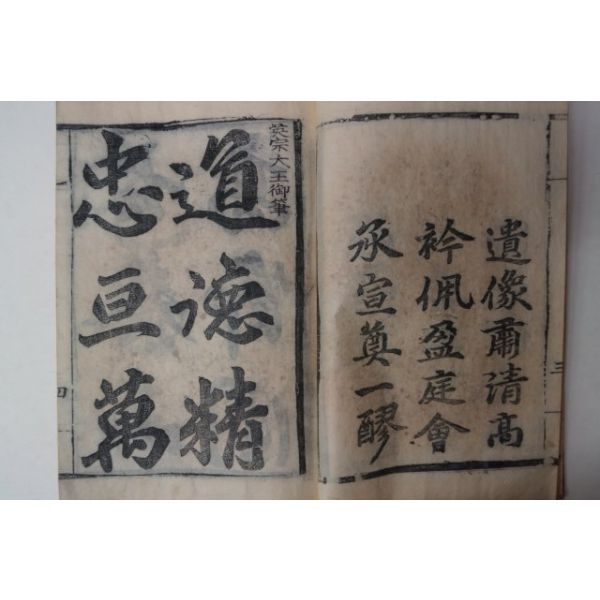 遺像肅清高
衿佩盈庭會
承宣奠一醪
三
英宗大王御筆
道德精
忠亘萬
四